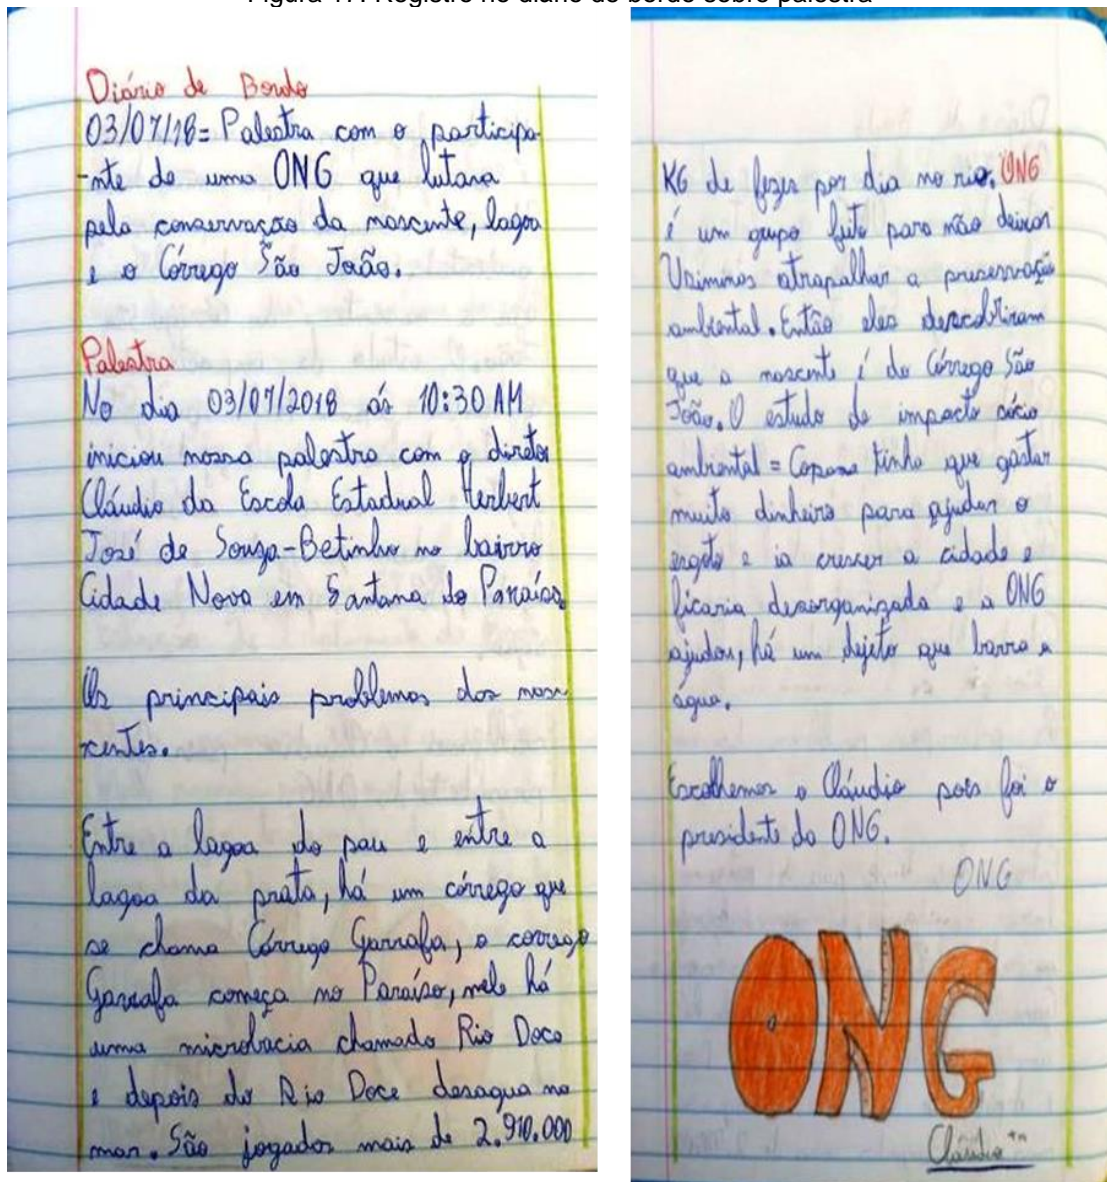 Figura 47: Registro no diário de bordo sobre palestra
Diário de Bordo
03/07/18= Palestra com o participa-
-nte de uma ONG que lutara
pela conservação da nascente, lagoa
e o Córrego São João.
Palestra
No dia 03/07/2018 ás 10:30 AM
iniciou nossa palestra com o diretor
Cláudio da Escola Estadual Herbert
José de Souza-Betinho no bairro
Cidade Nova em Santana do Paraíso.
Os principais problemas das nas-
centes.
Entre a lagoa do pau e entre a
lagoa da prata, há um córrego que
se chama Córrego Garrafa, o corrego
Garrafa começa no Paraíso, nele há
uma microbacia chamado Rio Doce
e depois do Rio Doce desagua no
mar. São jogados mais de 2.910.000
KG de fezes por dia no rio. ONG
é um grupo feito para não deixar
Usiminas atrapalhar a preservação
ambiental. Então eles descobriram
que a nascente é do Córrego São
João. O estudo de impacto sócio
ambiental = Copasa tinha que gastar
muito dinheiro para ajudar o
esgoto e ia crescer a cidade e
ficaria desorganizada e a ONG
ajudou, há um dejeto que barra a
água.
Escolhemos o Cláudio pois foi o
presidente da ONG.
ONG
ONG
Cláudio